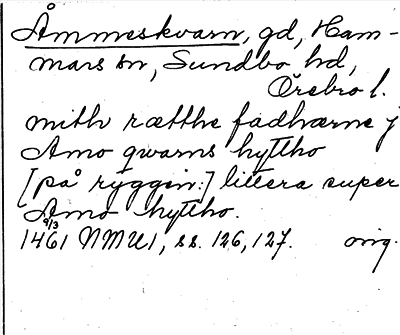 Åmmeskvarn, gd, Ham-
mars sn, Sundbo hd,
Örebro l.
mith rætthe fædhærne j
Amo qwarns hyttho
[på ryggen:] littera super
Amo hyttho.
1461 9/3 NMU1, ss. 126, 127. orig.